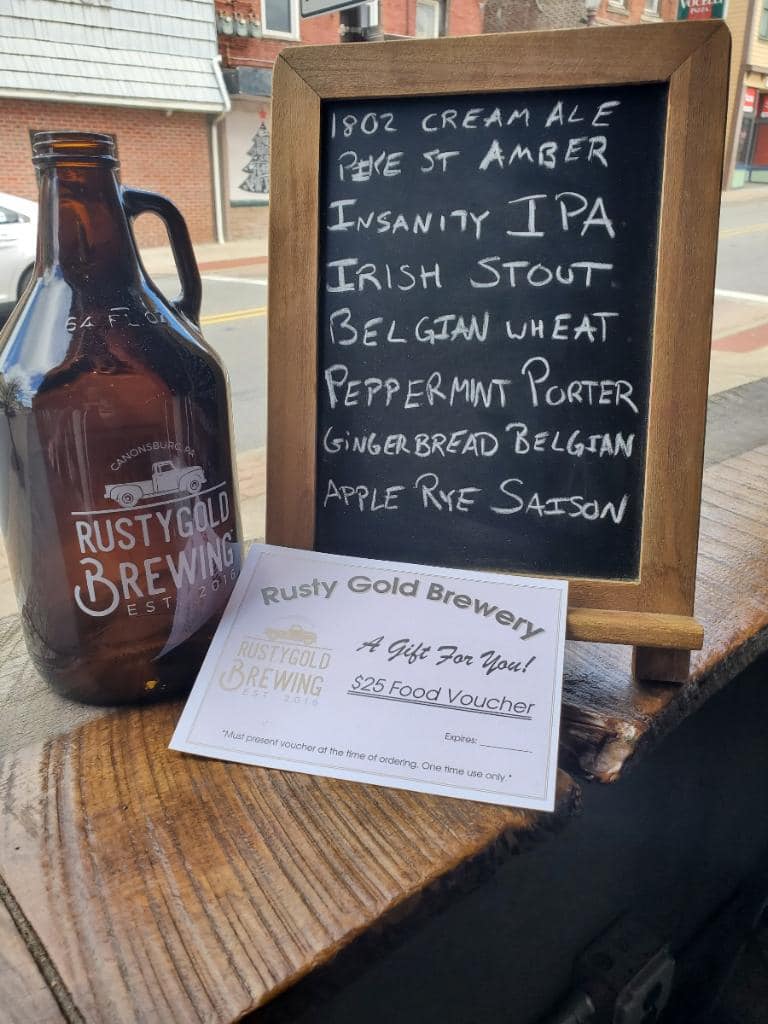 VOCELLI
PIZZA
1802 CREAM ALE
PIKE ST AMBER
INSANITY IPA
IRISH STOUT
BELGIAN WHEAT
PEPPERMINT PORTER
GINGERBREAD BELGIAN
APPLE RYE SAISON
64 FL OZ
CANONSBURG PA
RUSTYGOLD
BREWING
EST. 2016
Rusty Gold Brewery
RUSTYGOLD
BREWING
EST. 2016
A Gift For You!
$25 Food Voucher
Expires: ________
*Must present voucher at the time of ordering. One time use only.*